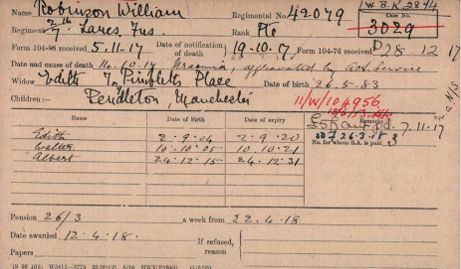 I W.B.K. 2844
Name Robinson William Regimental No. 42079 Case No. 3029
Regiment 2/7th Lancs. Fus. Rank Pte
Form 104-88 received 5.11.17 Date of notification of death 19.10.17 Form 104-76 received 28 12 17
Date and cause of death 14.10.17 Uraemia aggravated by Act. Service
Widow Edith Place Date of birth 26.5.83
Children:— Pendleton, Manchester 11/W/104956
Name Date of birth Date of expiry Remarks 7.11.17
Edith 2.9.04 2.9.20
No. for whom S.A. is paid 3
Walter 10.10.05 10.10.21
Albert 24.12.15 24.12.31
Pension 26/3 a week from 22.4.18
Date awarded 12.4.18. If refused, reason
Papers